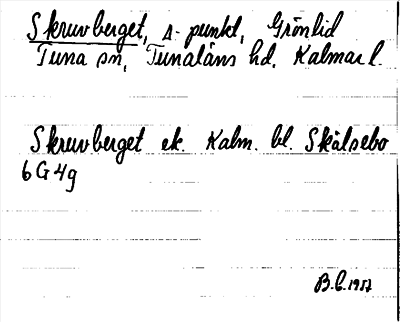 Skruvberget, A-punkt, Grönlid
Tuna sn, Tunaläns hd, Kalmar l.
Skruvberget ek. Kalm. bl. Skälsebo
6 G 4g
B.C. 1957